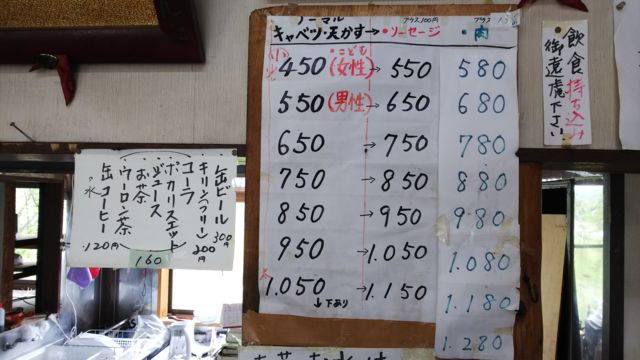 ノーマル
プラス100円
プラス
キャベツ・天かす→・ソーセージ
・肉
小
・こども
450(女性)→550
580
550(男性)→650
680
650
→750
780
750
→850
880
850
→950
980
950
→1.050
1.080
大
1.050
→1.150
1.180
↓下あり
1.280
飲食持ち込み
御遠慮下さい
缶ビール 300円
キリン(フリー) 200円
コーラ
ポカリスエット
ジュース
お茶
ウーロン茶
160
水
缶コーヒー
120円